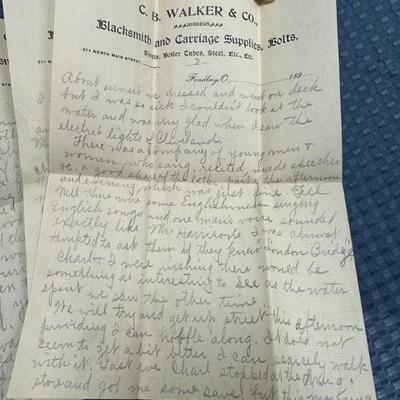 C. B. WALKER & CO.,
JOBBERS
Blacksmith and Carriage Supplies, Bolts,
Rivets, Boiler Tubes, Steel, Etc., Etc.
311 NORTH MAIN STREET
-2-
Findlay, O. 189
About sunset we dressed and went on deck
but I was so sick I couldn't look at the
water and was very glad when I saw the
electric lights of Cleveland.
There was a company of young men &
women who sang, recited, made speeches
a good share of the afternoon
and evening which was just fine. Tell
Mell there were some Englishmen singing
English songs and one man's voice sounded
exactly like Mr. I was almost
tempted to ask them if they knew "London Bridge"
Chart & I were wishing there would be
something as interesting to see as the water
spout we saw the other time.
We will try and get up street this afternoon
providing I can hobble along. It does not
seem to get a bit better I can scarcely walk
with it. Last eve Chart stopped at the drug
store and got me some salve but this morning